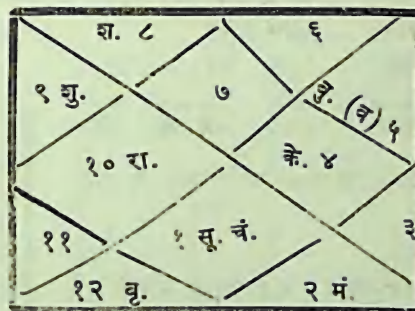 श. ८
६
९ शु.
७
बु. (व) ५
१० रा.
के. ४
११
१ सू. चं.
३
१२ वृ.
२ मं.